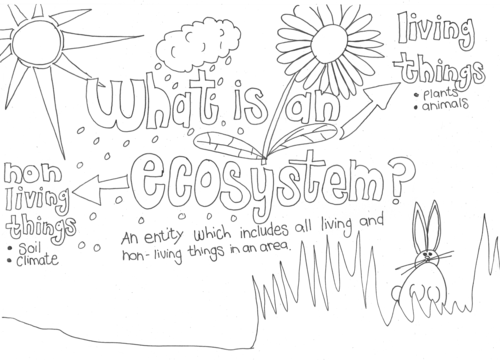 What is an
ecosystem?
living
things
• Plants
• animals
non
living
things
• Soil
• Climate
An entity which includes all living and
non-living things in an area.